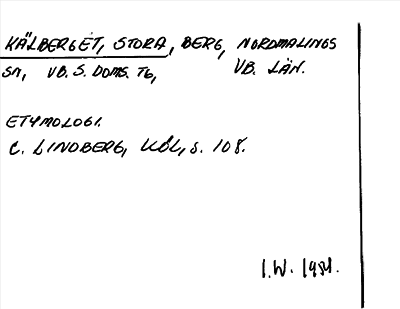 KÄLBERGET, STORA, BERG, NORDMALINGS
SN, VB. S. DOMS. TG, VB. LÄN.
ETYMOLOGI.
C. LINDBERG, KÖL, S. 108.
I.W. 1984.